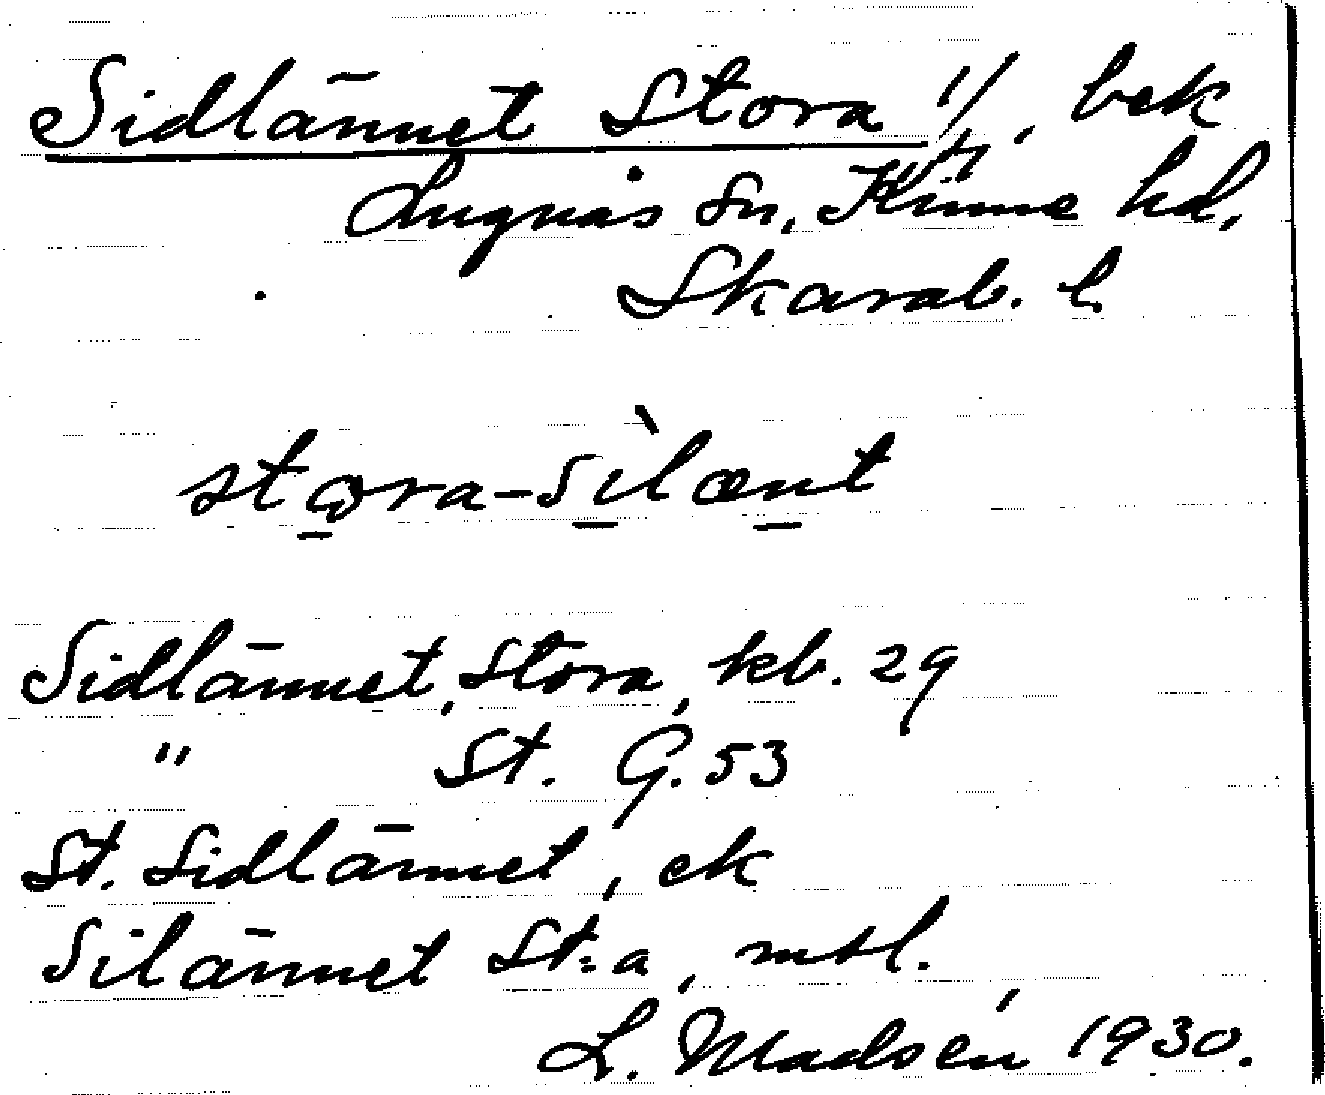 Sidlännet Stora 1/4, bek
Lugnås Sn, Kinne hd,
Skarab. l.
stora-sìlænt
Sidlännet, Stora, kb. 29
" St. G. 53
St. Sidlännet, ek
Silännet St:a, mtl.
L. Madsén 1930.